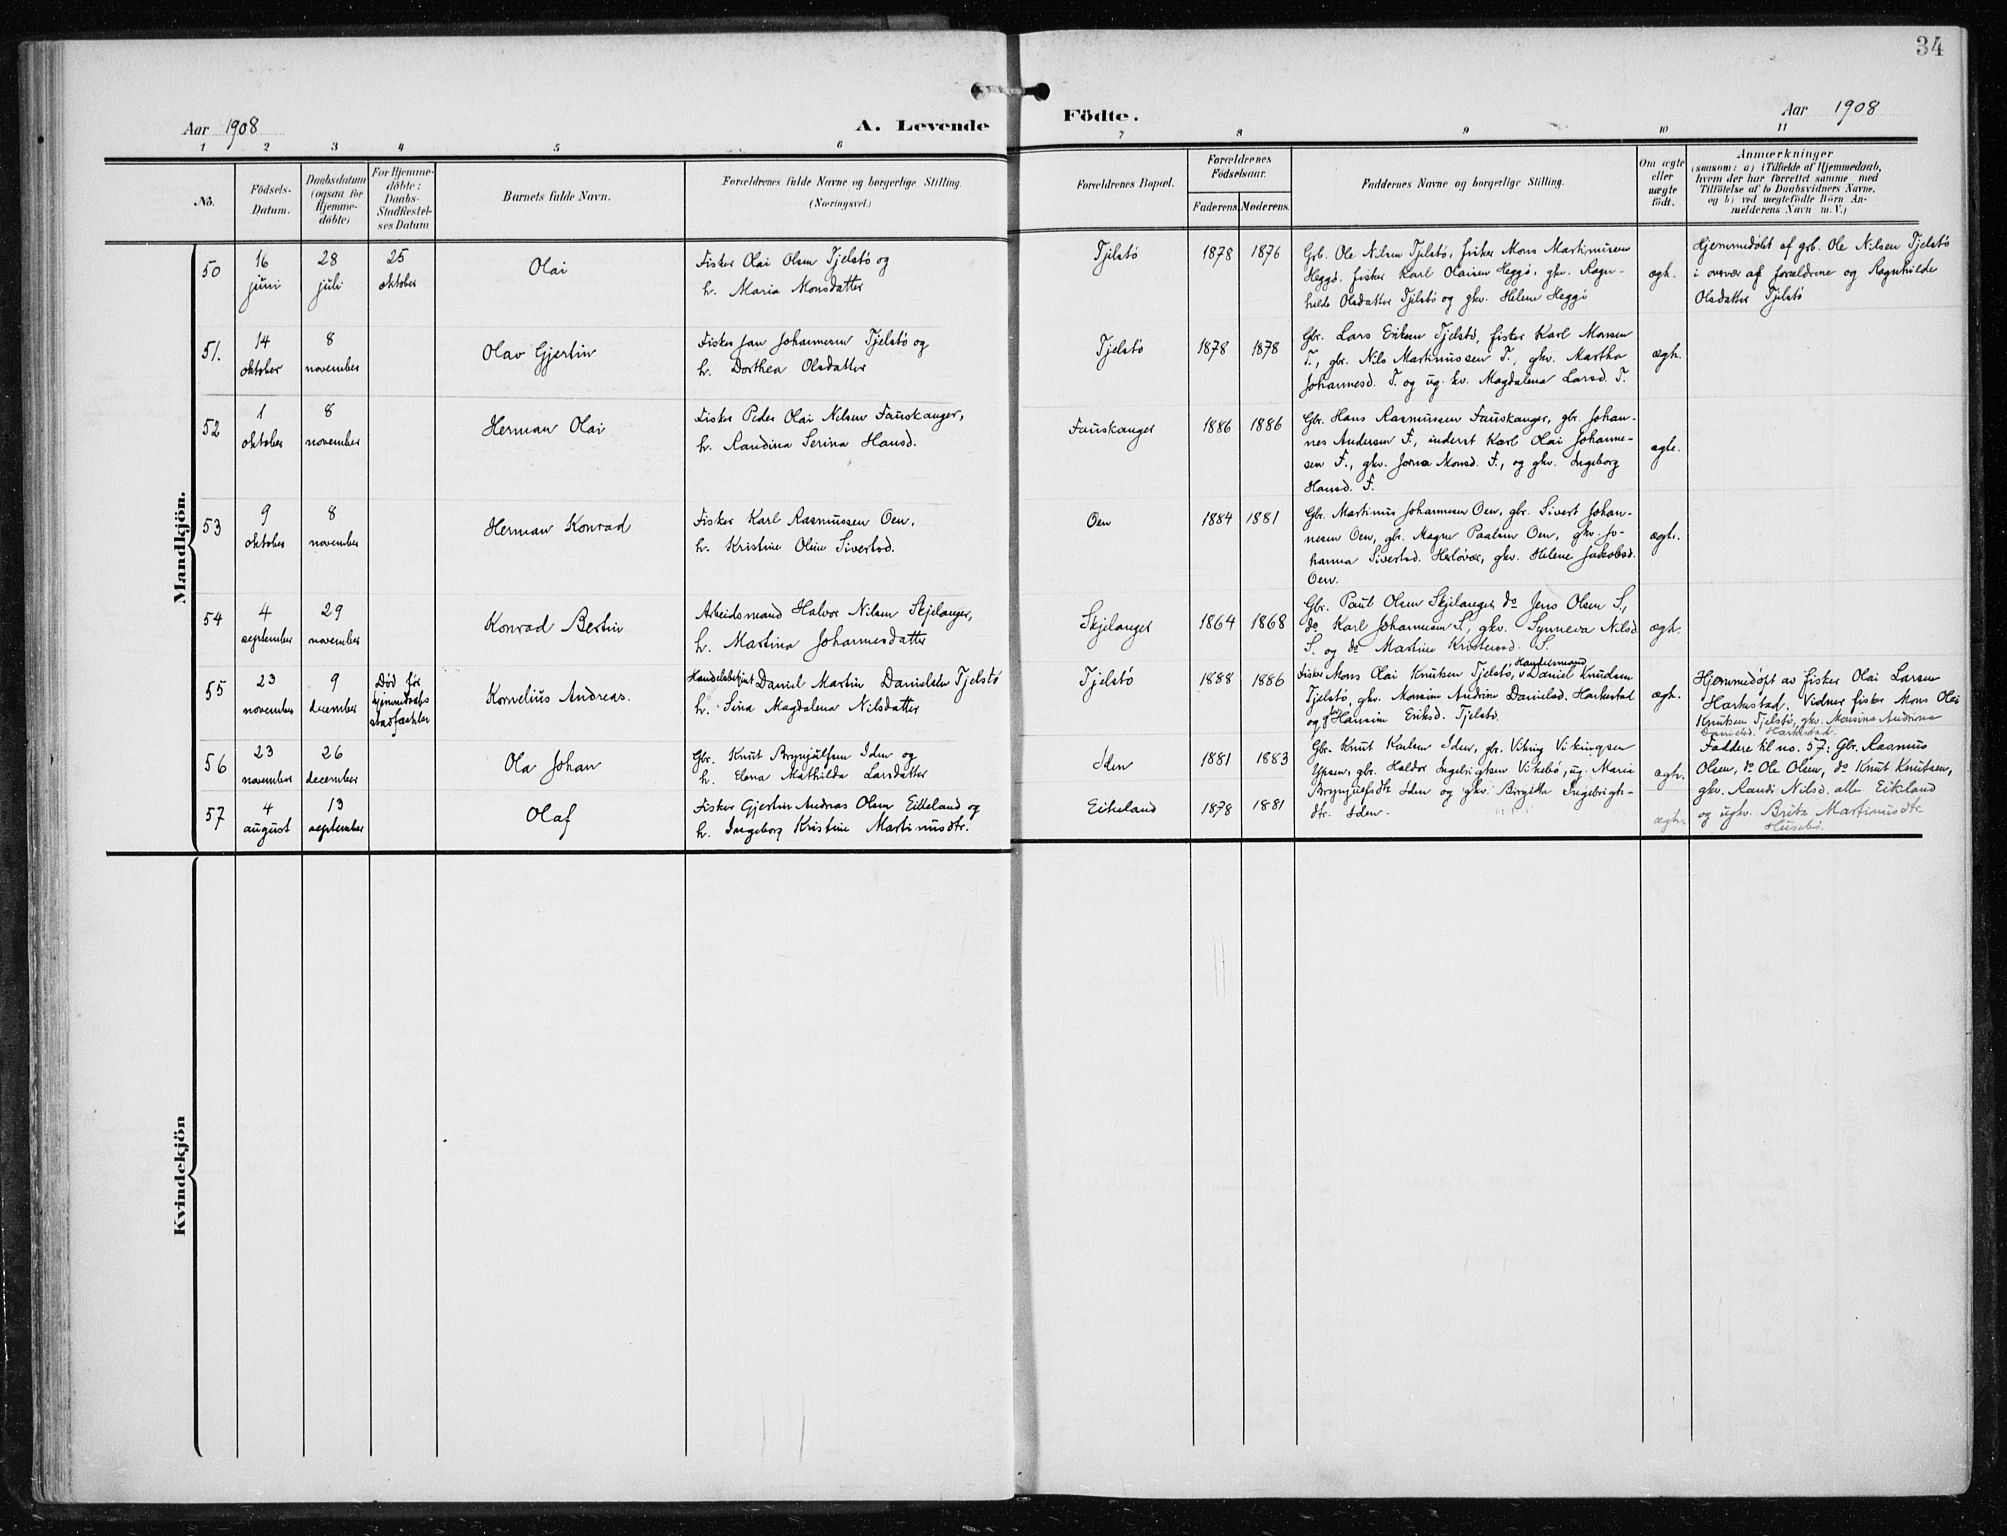 34
Aar 1908
A. Levende Födte.
Aar 1908
1 2 3 4 5 6 7 8 9 10 11
No.
Födsels-
Datum.
Daabsdatum
(ogsaa for
Hjemme-
döbte)
For Hjemme-
döbte:
Daabs-
Stadfæstel-
ses Datum
Barnets fulde Navn.
Forældrenes fulde Navne og borgerlige Stilling.
(Næringsvei.)
Forældrenes Bopæl.
Forældrenes
Födselsaar.
Faderens. Moderens.
Faddernes Navne og borgerlige Stilling.
Om ægte
eller
uægte
födt.
Anmærkninger
(saasom: a) i Tilfælde af Hjemmedaab,
hvem der har forrettet samme med
Tilföielse af to Daabsvidners Navne,
og b) ved uægtefödte Börn An-
melderens Navn m. V.)
Mandkjön.
50
16
juni
28
juli
25
oktober
Olai
Fisker Olai Olsen Tjelstø og
h. Maria Monsdatter
Tjelstø
1878 1876
Grb. Ole Nilsen Tjelstø, fisker Mons Martinusen
Heggø, fisker Karl Olaisen Heggø, gkv. Ragn-
hilde Olsdatter Tjelstø og gkv. Helene Heggø
ægh.
Hjemmedøbt af grb. Ole Nilsen Tjelstø
i overvær af forældrene og Ragnhilde
Olsdatter Tjelstø
51.
14
oktober
8
november
Olav Gjertin
Fisker Jan Johannesen Tjelstø og
h. Dorthea Olsdatter
Tjelstø
1878 1878
Gbr. Lars Eriksen Tjelstø, fisker Karl Monsen
T., gbr. Nils Martinussen T., gkv. Martha
Johannesd. T. og ug. kv. Magdalena Larsd. T.
ægh.
52
1
oktober
8
november
Herman Olai
Fisker Peder Olai Nilsen Fauskanger,
h. Randina Serina Hansd.
Fauskanger
1886 1886
Gbr. Hans Rasmussen Fauskanger, gbr. Johan-
nes Andersen F., inderst Karl Olai Johanne-
sen F., gkv. Jorna Monsd. F., og gkv. Ingeborg
Hansd. F.
ægte.
53
9
oktober
8
november
Herman Konrad
Fisker Karl Rasmussen Oen,
h. Kristine Oline Sivertsd.
Oen
1884 1881
Gbr. Martinus Johannesen Oen, gbr. Sivert Johan-
nesen Oen, gb. Magne Paalsen Oen, gkv. Jo-
hanna Sivertsd. Herløvær, gkv. Helene Jakobsd.
Oen.
ægh.
54
4
september
29
november
Konrad Bertin
Arbeidsmand Halvor Nilsen Skjelanger,
h. Martina Johannesdatter
Skjelanger
1864 1868
Gbr. Paul Olsen Skjelanger, do Jens Olsen S.,
do Karl Johannesen S., gkv. Synneva Nilsd.
S. og do Martine Kristensd. S.
ægh.
55
23
november
9
december
Død før
hjemmedaabs
stadfæstelse
Kornelius Andreas.
Handelsbetjent Daniel Martin Danielsen Tjelstø
h. Sina Magdalena Nilsdatter
Tjelstø
1888 1886
Fisker Mons Olai Knutsen Tjelstø, Handelsmand Daniel Knudsen
Tjelstø, gkv. Monsine Andrine Danielsd. Harkestad
og gkv Hansine Eriksd. Tjelstø.
ægh.
Hjemmedøpt av fisker Olai Larsen
Harkestad. Vidner fisker Mons Olai
Knutsen Tjelstø, gkv. Monsina Andrina
Danielsd. Harkestad.
56
23
november
26
december
Ola Johan
Gbr. Knut Brynjulfsen Iden og
h. Elena Mathilda Larsdatter
Iden
1881 1883
Gbr. Knut Karlsen Iden, gbr. Viking Vikingsen
Ypsen, gbr. Haldor Ingebrigtsen Vikebø, ug. Maria
Brynjulfsdtr Iden og gkv. Birgitha Ingebrigts-
dtr. Iden.
ægh.
57
4
august
13
september
Olaf
Fisker Gjertin Andreas Olsen Eikeland og
h. Ingeborg Kristine Martinusdtr.
Eikeland
1878 1881
ægh.
Faddere til no. 57: Gbr. Rasmus
Olsen, do Ole Olsen, do Knut Knutsen,
gkv. Randi Nilsd. alle Eikeland
og ugkv. Brita Martinusdtr.
Husebø.
Kvindekjön